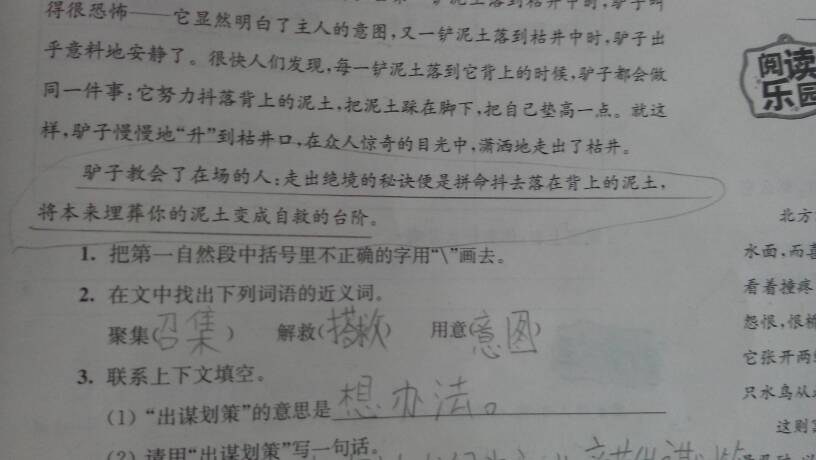 得很恐怖——它显然明白了主人的意图,又一铲泥土落到枯井中时,驴子出
乎意料地安静了。很快人们发现,每一铲泥土落到它背上的时候,驴子都会做
同一件事:它努力抖落背上的泥土,把泥土踩在脚下,把自己垫高一点。就这
样,驴子慢慢地“升”到枯井口,在众人惊奇的目光中,潇洒地走出了枯井。
驴子教会了在场的人:走出绝境的秘诀便是拼命抖去落在背上的泥土,
将本来埋葬你的泥土变成自救的台阶。
1. 把第一自然段中括号里不正确的字用“\”画去。
2. 在文中找出下列词语的近义词。
聚集(召集) 解救(搭救) 用意(意图)
3. 联系上下文填空。
(1) “出谋划策”的意思是想办法。
(2) 请用“出谋划策”写一句话。
阅读
乐园
北方
水面,而喜
看着撞疼
怨恨,恨桥
它张开两
只水鸟从
这则